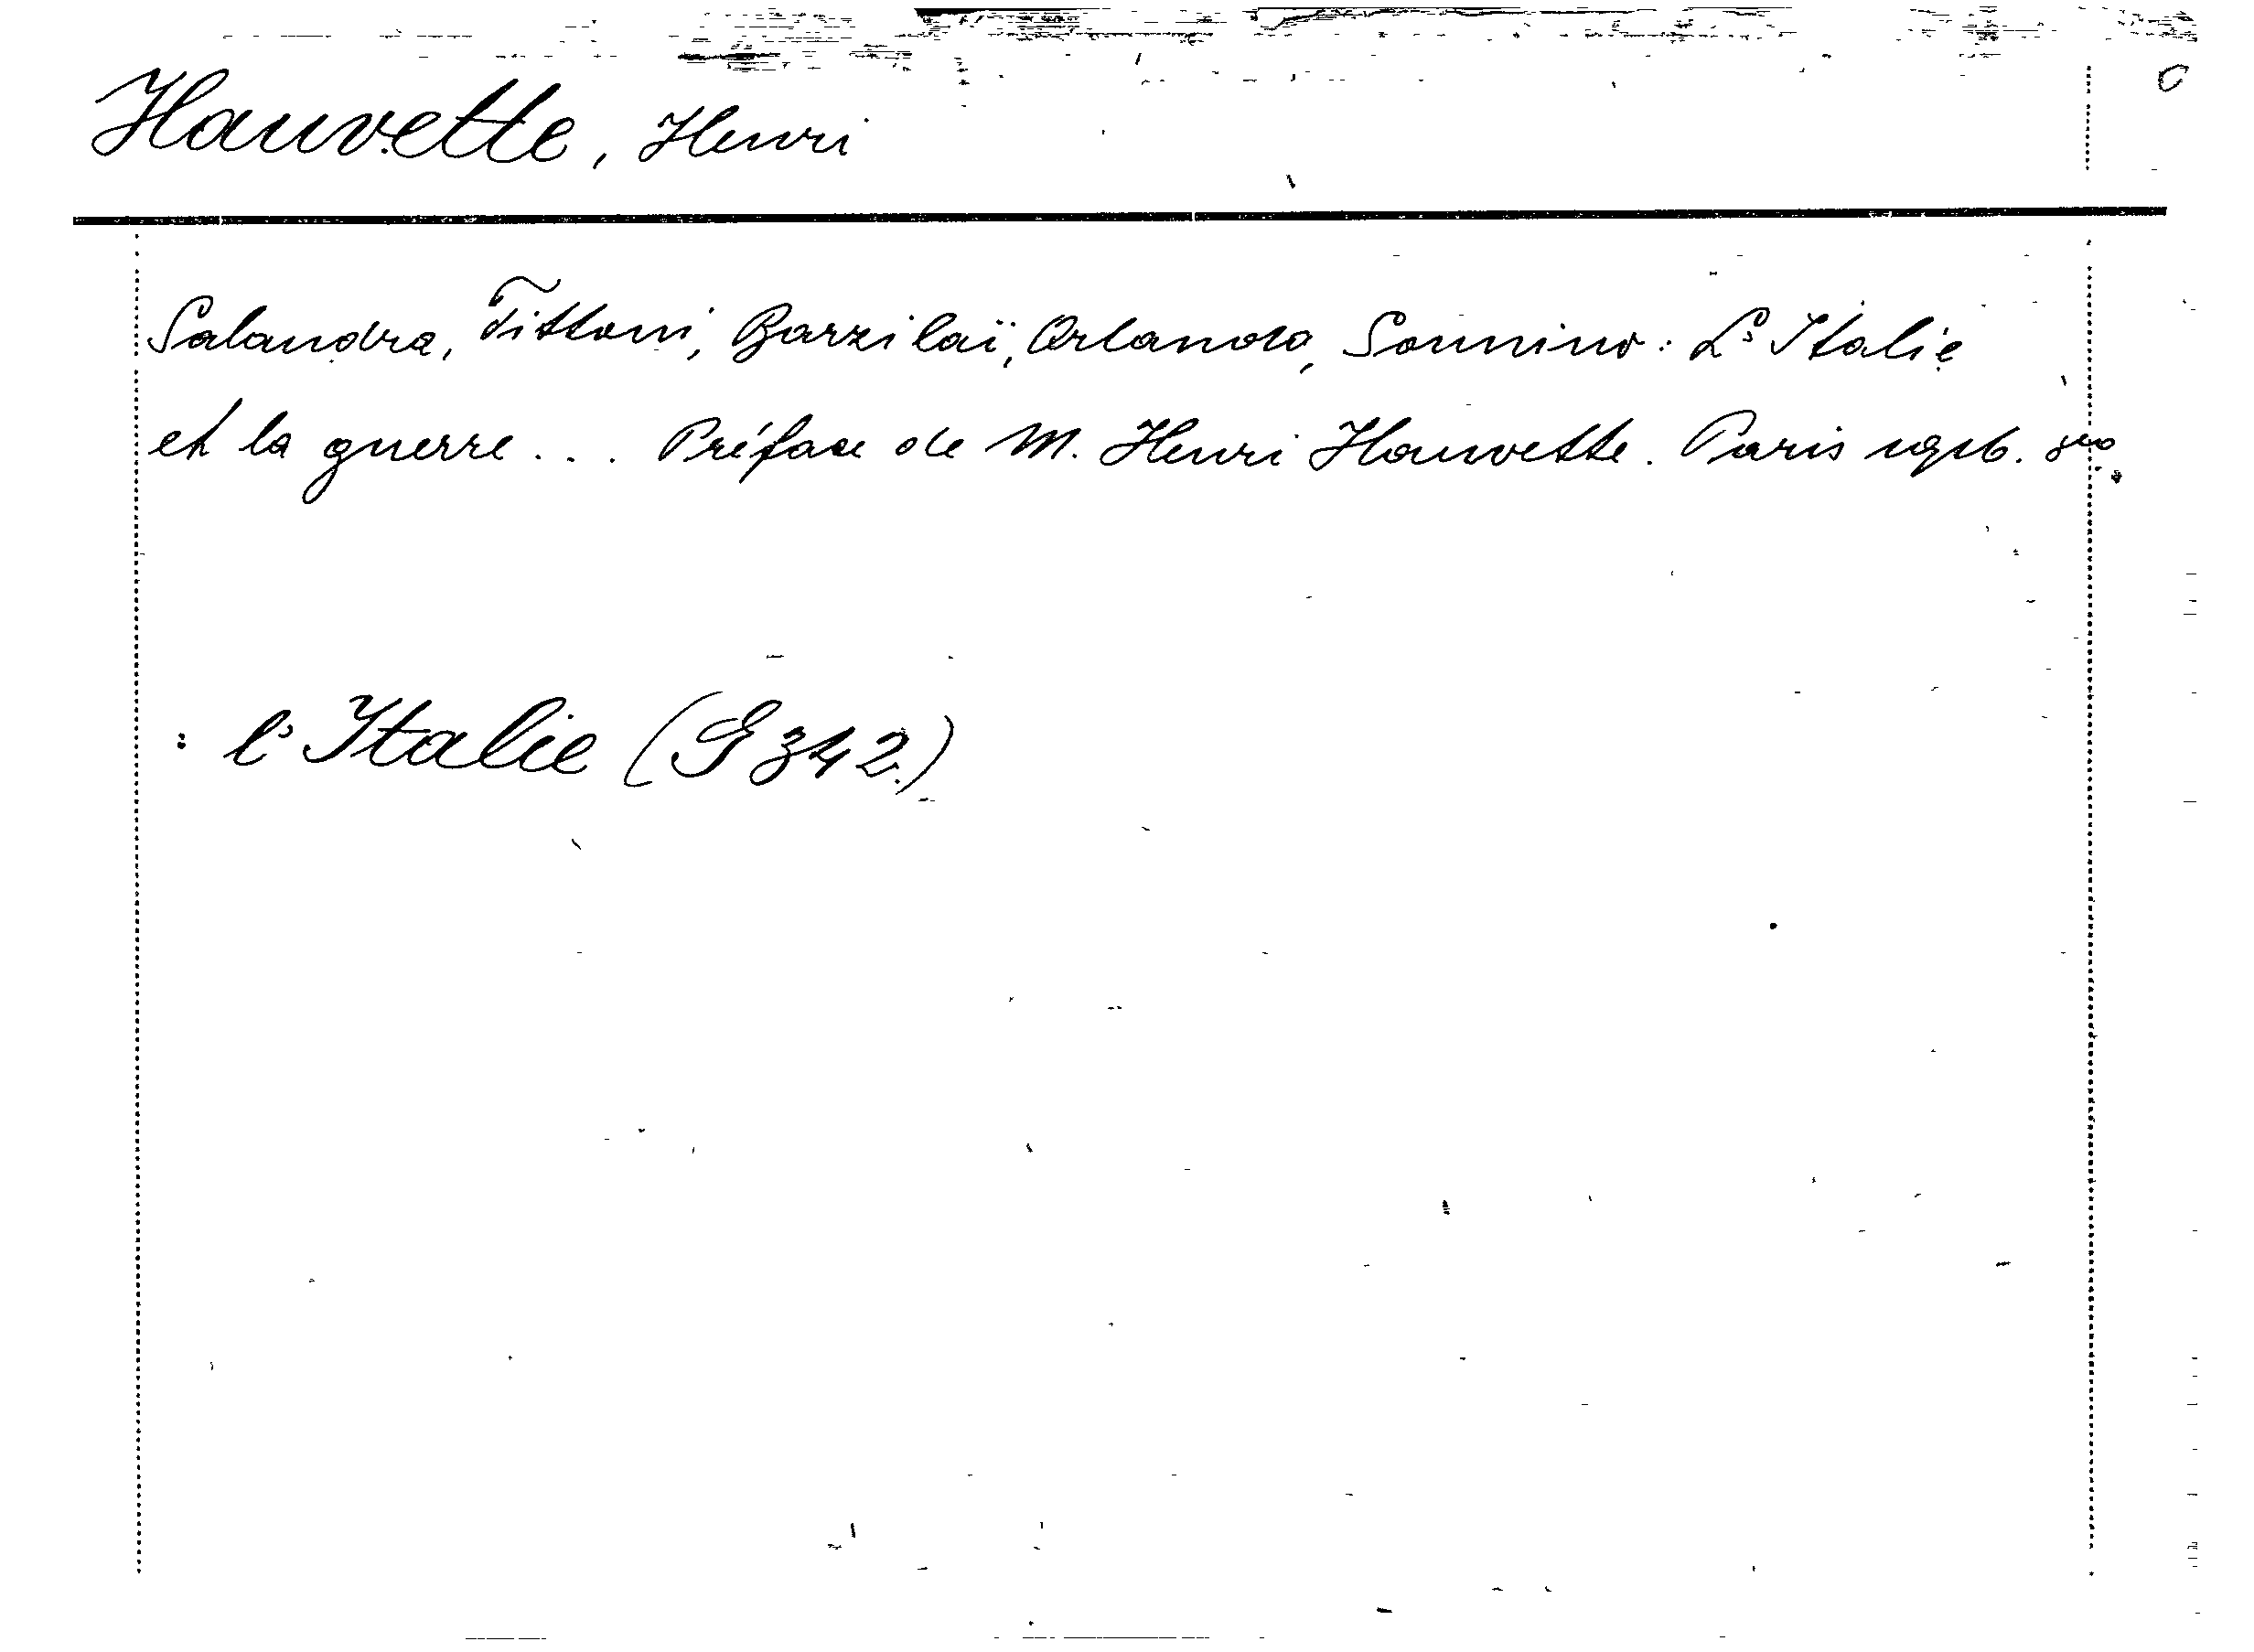 Hauvette, Henri
Salandra, Tittoni, Barzilaï, Orlando, Sonnino: L'Italie
et la guerre... Préface de M. Henri Hauvette. Paris 1916. 8vo.
: l'Italie (G 342.)